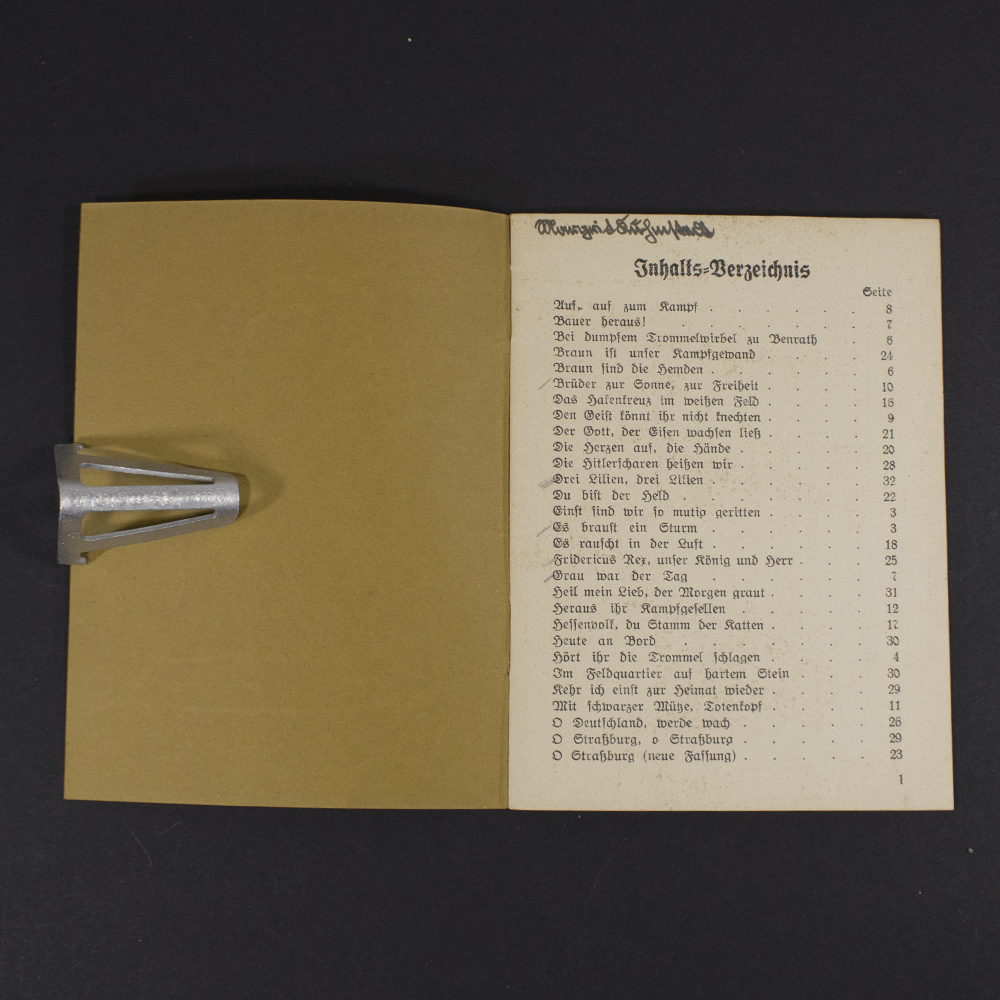 Inhalts-Verzeichnis
Seite
Auf, auf zum Kampf . . . . . . 8
Bauer heraus! . . . . . . 7
Bei dumpfem Trommelwirbel zu Benrath . 6
Braun ist unser Kampfgewand . . . . 24
Braun sind die Hemden . . . . . 6
Brüder zur Sonne, zur Freiheit . . . . 10
Das Hakenkreuz im weißen Feld . . . . 16
Den Geist könnt ihr nicht knechten . . . . 9
Der Gott, der Eisen wachsen ließ . . . . 21
Die Herzen auf, die Hände . . . . . 20
Die Hitlerscharen heißen wir . . . . . 28
Drei Lilien, drei Lilien . . . . . 32
Du bist der Held . . . . . . 22
Einst sind wir so mutig geritten . . . . 3
Es braust ein Sturm . . . . . 3
Es rauscht in der Luft . . . . . 18
Fridericus Rex, unser König und Herr . . . 25
Grau war der Tag . . . . . . 7
Heil mein Lieb, der Morgen graut . . . . 31
Heraus ihr Kampfgesellen . . . . . 12
Hessenvolk, du Stamm der Katten . . . . 17
Heute an Bord . . . . . . 30
Hört ihr die Trommel schlagen . . . . 4
Im Feldquartier auf hartem Stein . . . 30
Kehr ich einst zur Heimat wieder . . . . 29
Mit schwarzer Mütze, Totenkopf . . . . 11
O Deutschland, werde wach . . . . . 26
O Straßburg, o Straßburg . . . . . 29
O Straßburg (neue Fassung) . . . . . 23
1